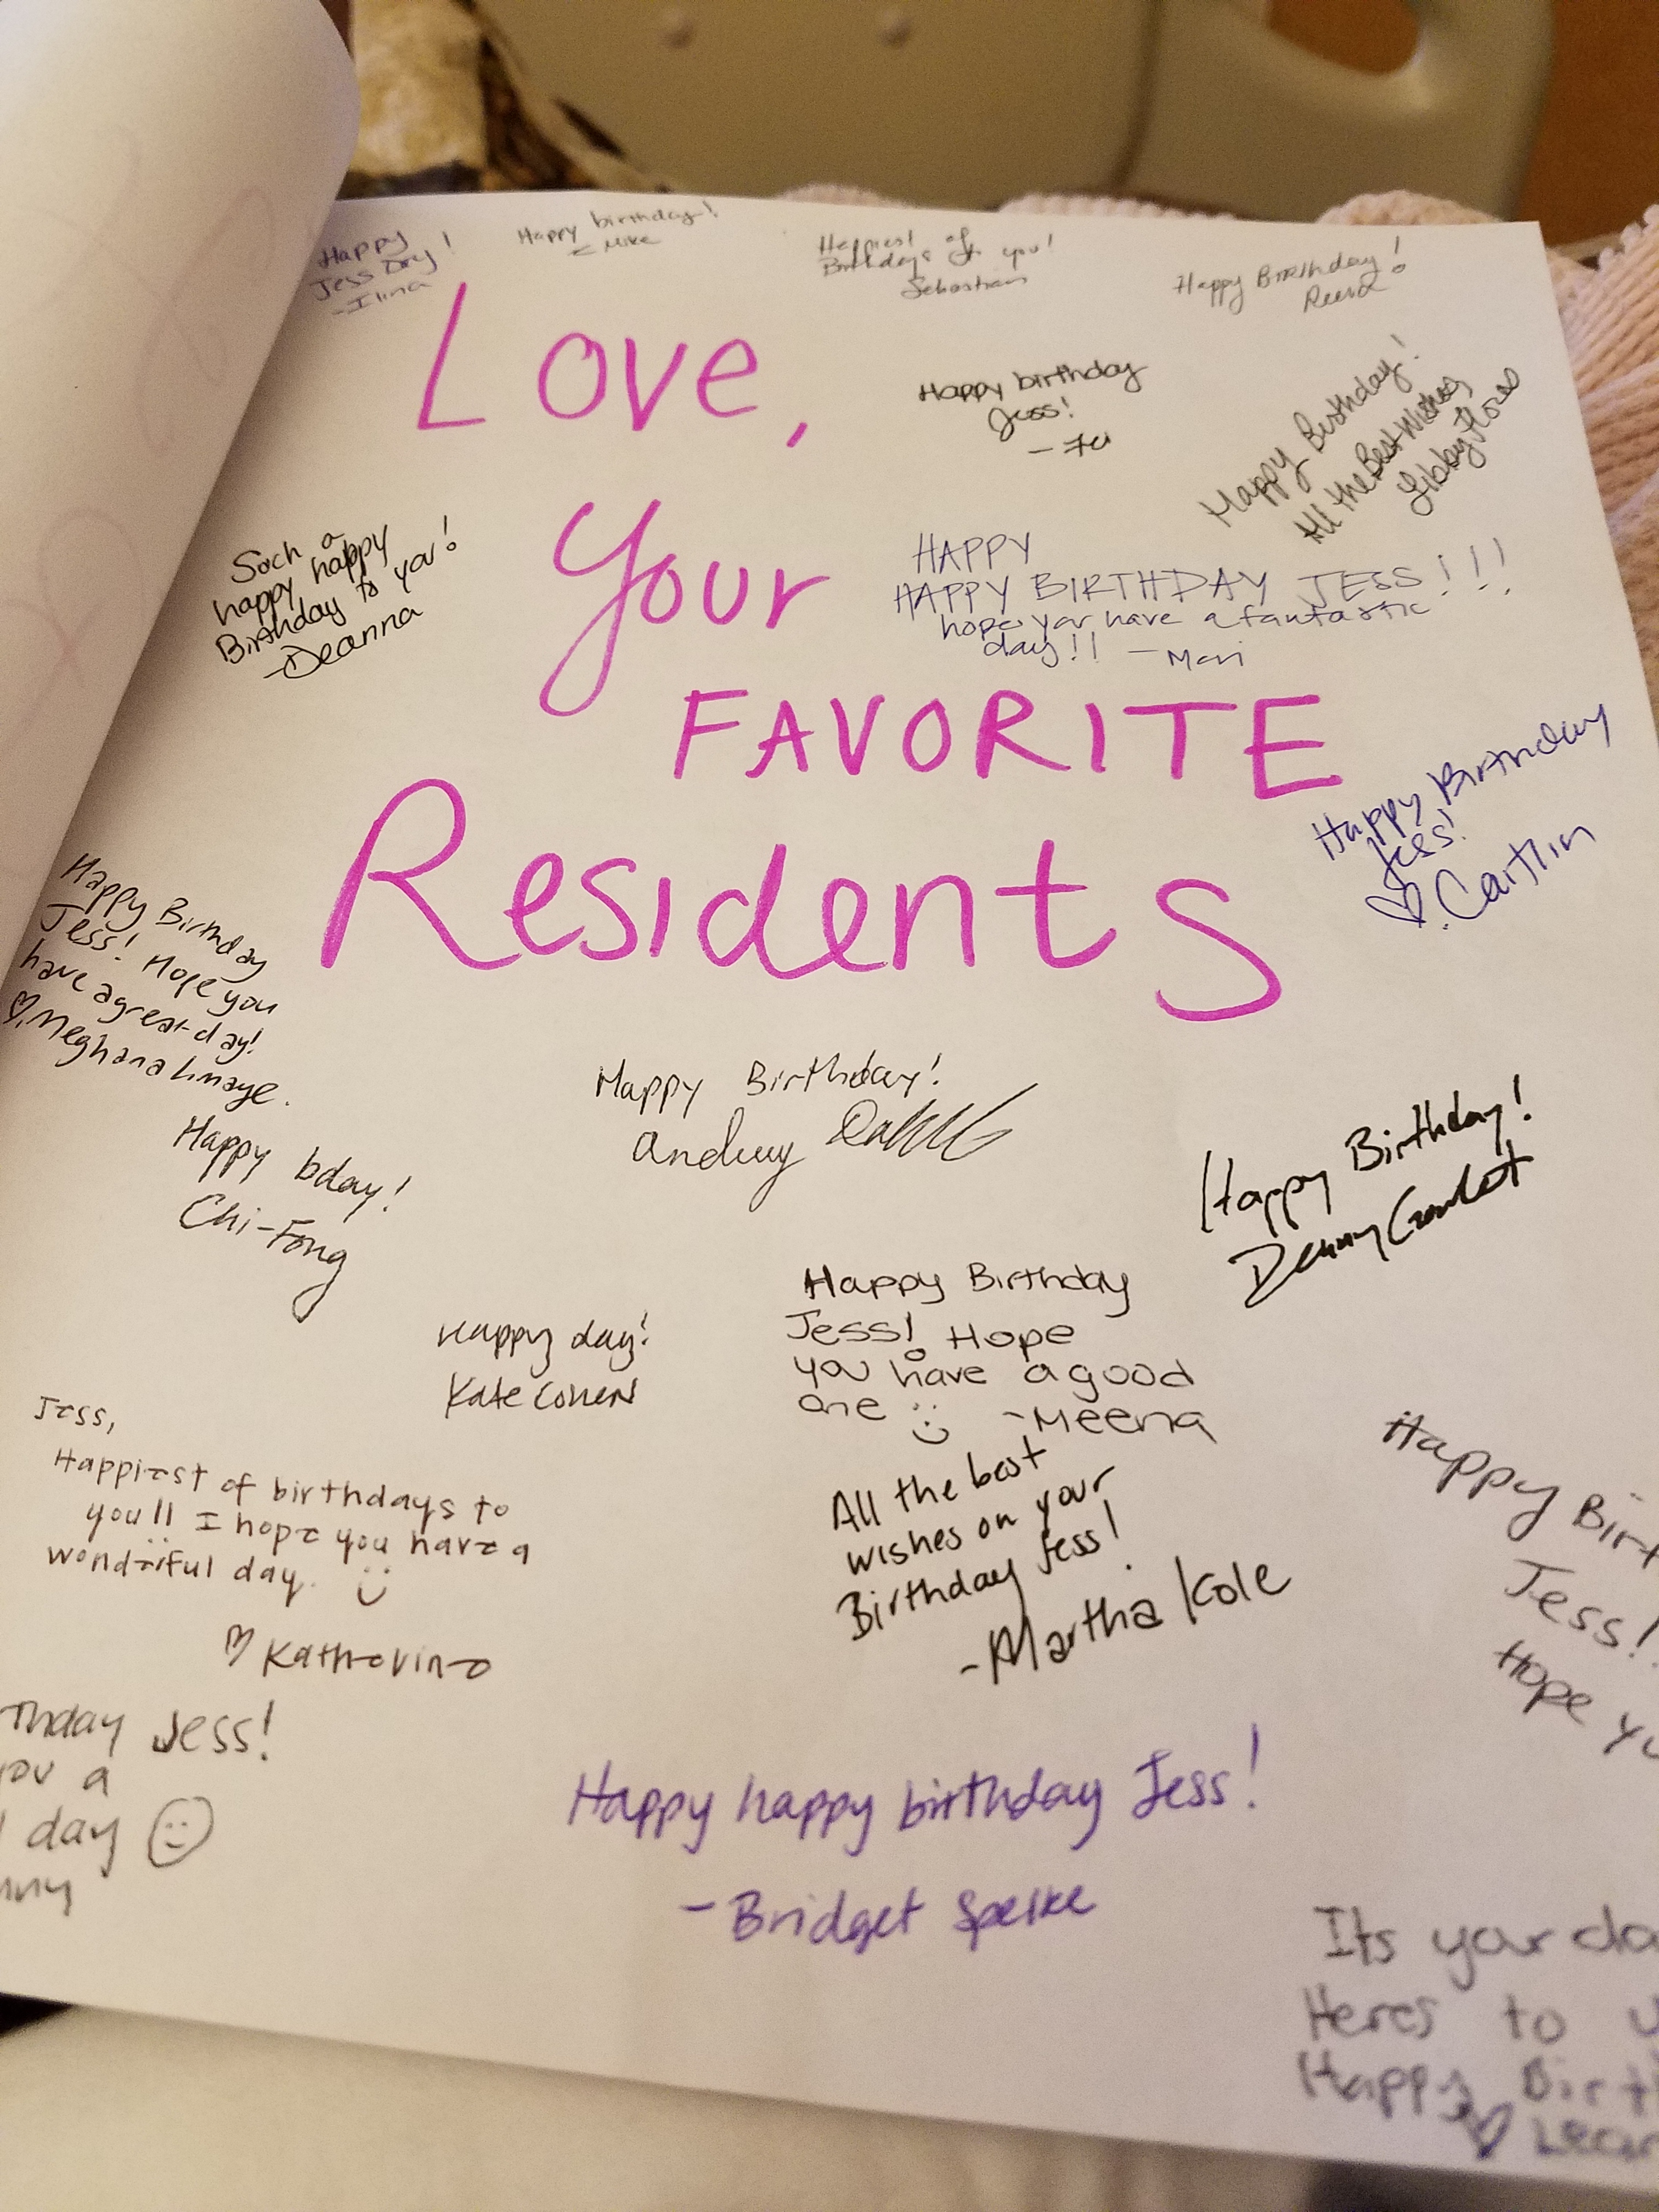 Happy
Jess Day!
-Ilina
Happy birthday!
Mike
Happiest of
Birthdays to you!
Sebastian
Happy Birthday!
Love,
Happy birthday
Jess!
Happy Birthday!
All the Best Wishes
Libby Flores
Such a
happy happy
Birthday to you!
-Deanna
Your
HAPPY
HAPPY BIRTHDAY JESS!!!
hope you have a fantastic
day!! - Mari
FAVORITE
Happy Birthday
Jess!
♡ Caitlin
Residents
Happy Birthday
Jess! Hope you
have a great day!
♡ Meghana Limaye.
Happy Birthday!
Happy bday!
Chi-Fong
Happy Birthday!
Denny
Happy day!
Kate Cohen
Happy Birthday
Jess! Hope
you have a good
one :) -Meena
Jess,
Happiest of birthdays to
you!! I hope you have a
wonderful day. :)
♡ Katherine
All the best
wishes on your
Birthday Jess!
-Martha Kole
Happy Birt
Jess!
Hope yo
thday Jess!
ou a
day ☺
nny
Happy happy birthday Jess!
- Bridget Spelke
Its your da
Heres to
Happy Birth
♡ Lea